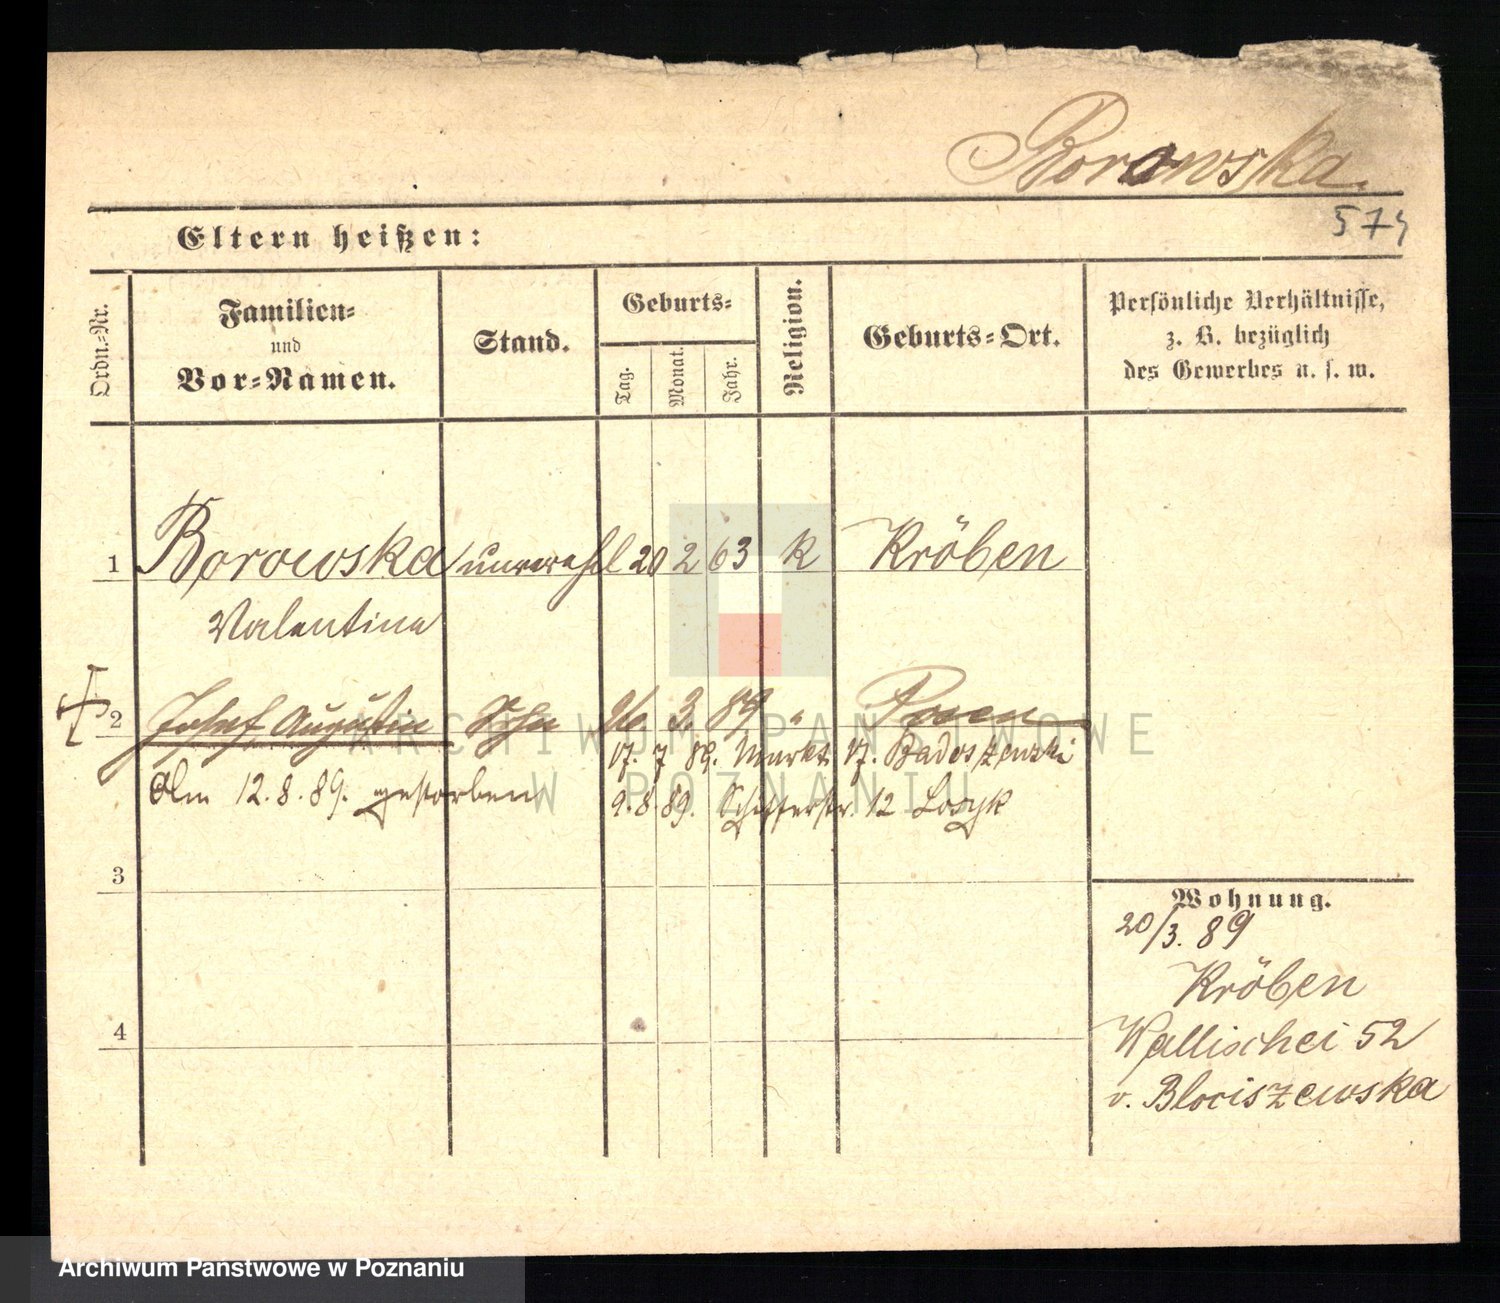 Borowska.
574
Eltern heißen:
Ordn.-Nr.
Familien-
und
Vor-Namen.
Stand.
Geburts-
Tag.
Monat.
Jahr.
Religion.
Geburts-Ort.
Persönliche Verhältnisse,
z. B. bezüglich
des Gewerbes u. s. w.
1 Borowska unverehl 20 2 63 k Kröben
Valentine
2 Josef Augustin Sohn 3. 89 " Posen
17. 7 89. Markt 17. Badoszenski
Am 12.8.89. gestorben
9.8.89. Schifferstr. 12
3
4
Wohnung.
20/3. 89
Kröben
Wallischei 52
v. Blociszewska
ARCHIWUM PAŃSTWOWE
W POZNANIU
Archiwum Państwowe w Poznaniu